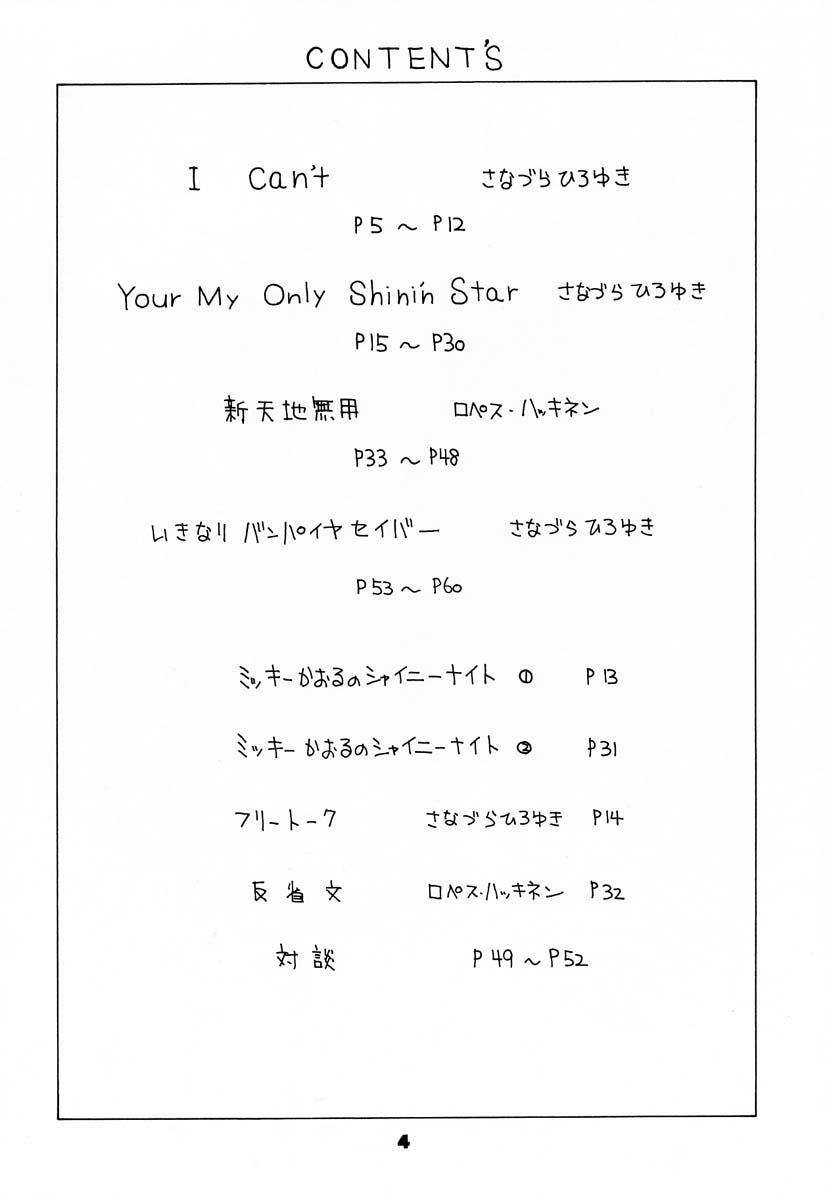 CONTENT'S
I Can't さなづらひろゆき
P5 〜 P12
Your My Only Shinin' Star さなづらひろゆき
P15 〜 P30
新天地無用 ロペス・ハッキネン
P33 〜 P48
いきなりバンパイヤセイバー さなづらひろゆき
P53 〜 P60
ミッキーかおるのシャイニーナイト ① P13
ミッキーかおるのシャイニーナイト ② P31
フリートーク さなづらひろゆき P14
反省文 ロペス・ハッキネン P32
対談 P49 〜 P52
4